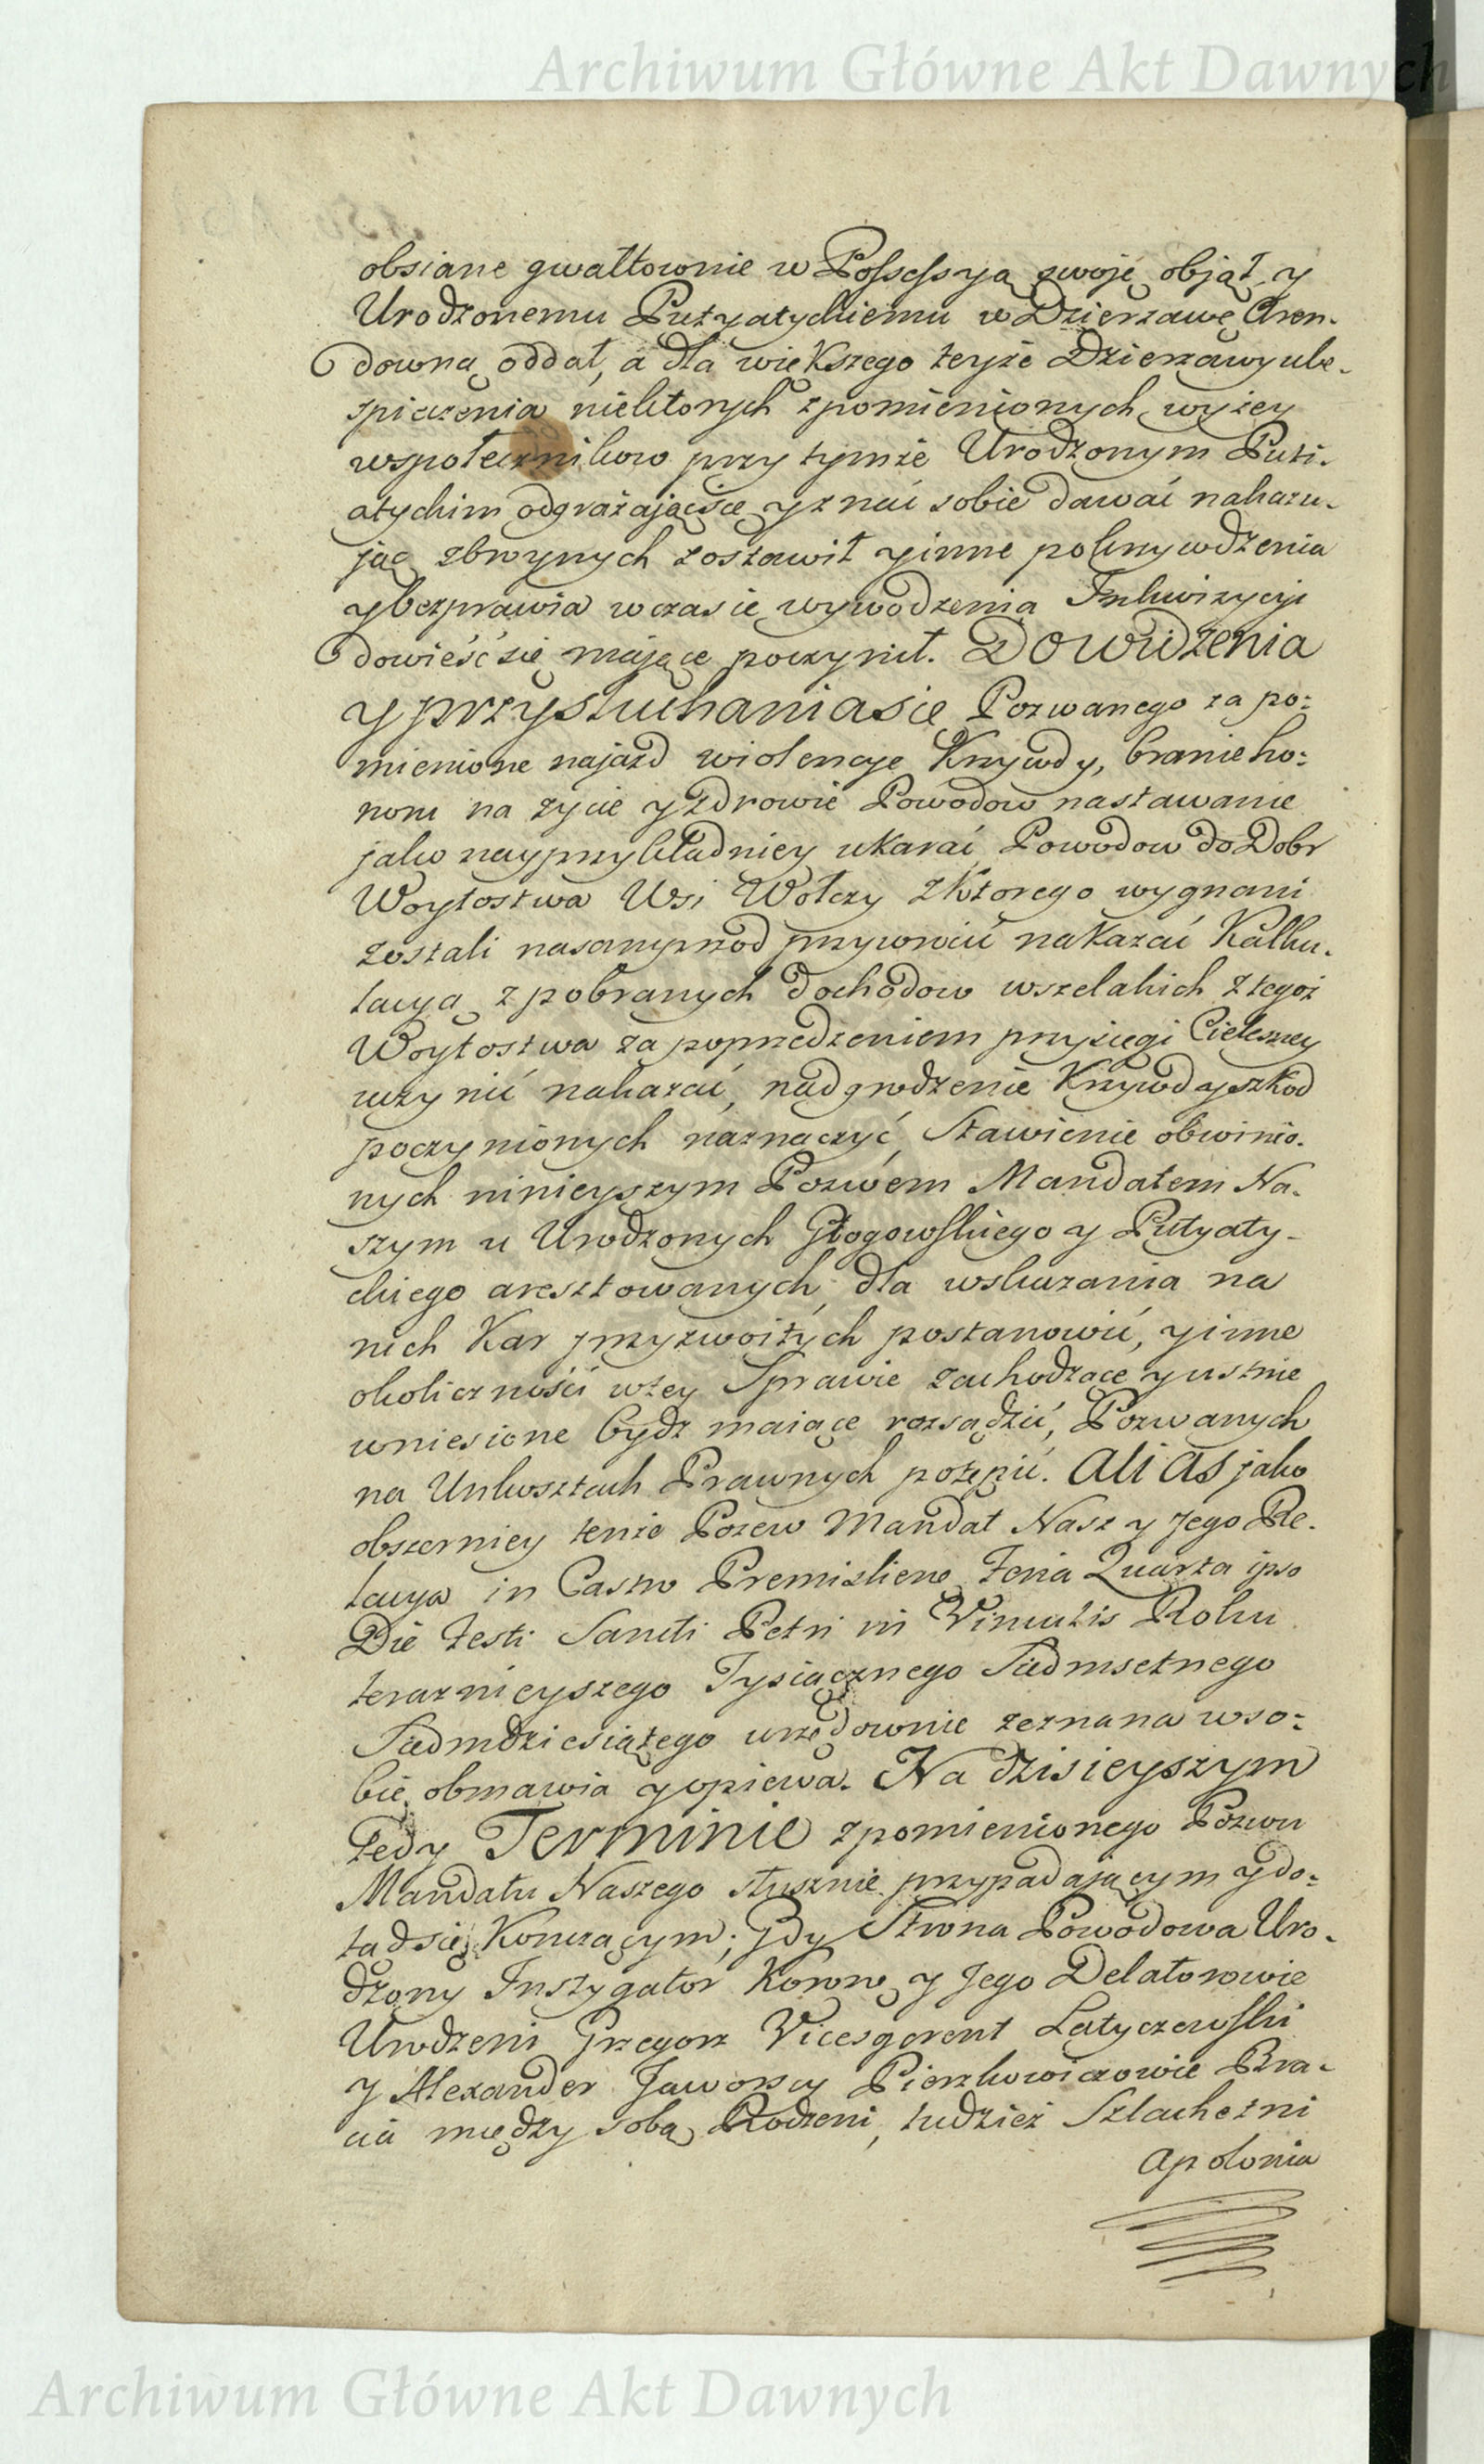 Archiwum Główne Akt Dawnych
obsiane gwałtownie w Possessyą swoję objął y
Urodzonemu Putyatyckiemu w Dzierzawę Aren-
downą oddał, a dla większego teyże Dzierzawy ube-
spieczenia niektorych zpomienionych wyżey
wspołecznikow przy tymże Urodzonym Puti-
atyckim odgrażającsię y znać sobie dawać nakazu-
jąc zbroynych zostawił y inne pokrzywdzenia
y bezprawia w czasie wywodzenia Inkwizycyi
dowieść się mające poczynił. Do widzenia
y przysłuchania się Pozwanego za po-
mienione najazd wiolencye Krzywdy, branie ho-
noru na życie y zdrowie Powodow nastawanie
jako nayprzykładniey ukarać Powodow do Dobr
Woytostwa Wsi Wołczy z Ktorego wygnani
zostali nasamprzod przywrocić nakazać Kalku-
lacyą z pobranych dochodow wszelakich z tegoż
Woytostwa za poprzedzeniem przysięgi Cielesney
uczynić nakazać, nadgrodzenie Krzywd y szkod
poczynionych naznaczyć, Stawienie obwinio-
nych ninieyszym Pozwem Mandatem Na-
szym u Urodzonych Głogowskiego y Putyaty-
ckiego aresztowanych dla wskazania na
nich Kar przyzwoitych postanowić, y inne
okoliczności w tey Sprawie zachodzące y ustnie
wniesione bydz maiące rozsądzić, Pozwanych
na Unkosztach Prawnych potępić. Alias jako
obszerniey tenże Pozew Mandat Nasz y Jego Re-
lacya in Castro Premislien: Feria Quarta ipso
Die Festi Sancti Petri in Vinculis Roku
teraznieyszego Tysiącznego Siedmsetnego
Siedmdziesiątego urzędownie zeznana w so-
bie obmawia y opiewa. Na dzisieyszym
tedy Terminie z pomienionego Pozwu
Mandatu Naszego słusznie przypadającym y do-
tąd się Kończącym; gdy Strona Powodowa Uro-
dzony Instygator Koronny y Jego Delatorowie
Urodzeni Grzegorz Vicesgerent Latyczewski
y Alexander Jaworscy Pierzkowiczowie Bra-
cia między sobą Rodzeni, tudzież Szlachetni
Apolonia
Archiwum Główne Akt Dawnych